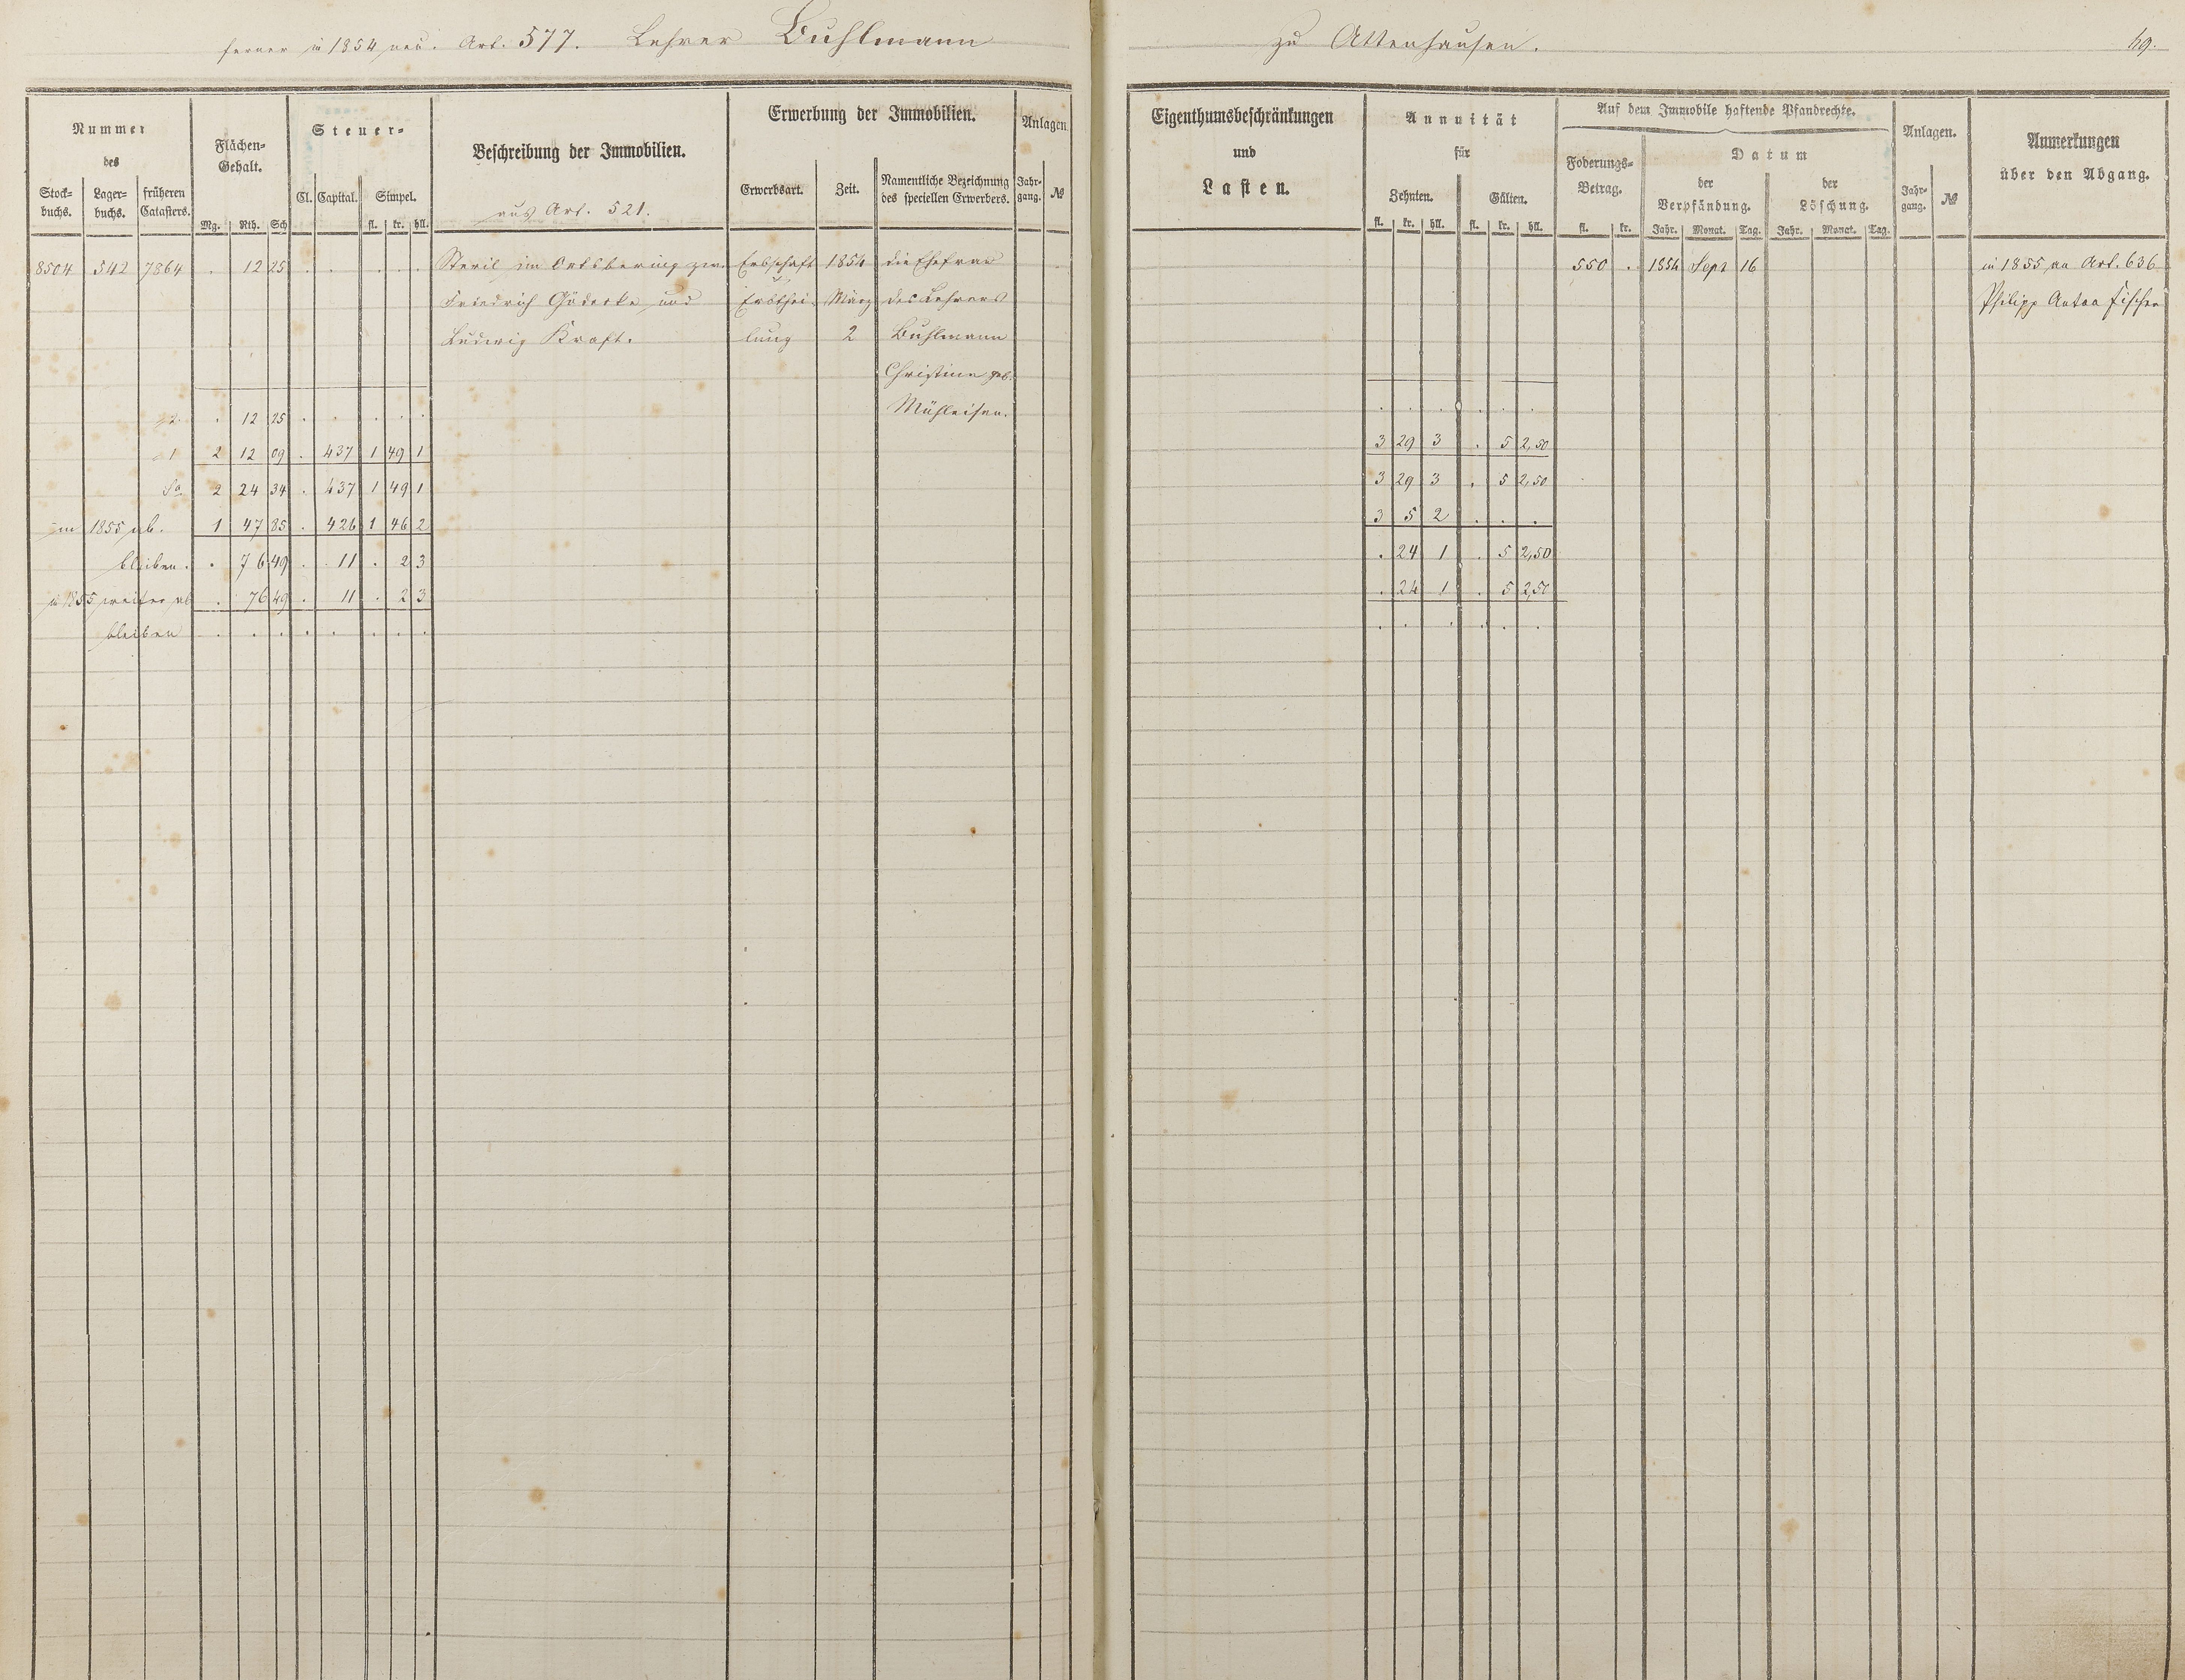 ferner in 1854 neu. Art. 577. Lehrer Buhlmann zu Attenhausen. 69.
Nummer
des
Stock-
buchs.
Lager-
buchs.
früheren
Catasters.
Flächen-
Gehalt.
Mg. Rth. Sch
Steuer-
Cl. Capital. Simpel.
fl. kr. hll.
Beschreibung der Immobilien.
aus Art. 521.
Erwerbung der Immobilien.
Erwerbsart. Zeit.
Namentliche Bezeichnung
des speciellen Erwerbers.
Anlagen
Jahr-
gang.
№
Eigenthumsbeschränkungen
und
Lasten.
Annuität
für
Zehnten. Gülten.
fl. kr. hll. fl. kr. hll.
Auf dem Immobile haftende Pfandrechte.
Foderungs-
Betrag.
fl. kr.
Datum
der
Verpfändung.
der
Löschung.
Jahr. Monat. Tag. Jahr. Monat. Tag.
Anlagen.
Jahr-
gang.
№
Anmerkungen
über den Abgang.
8504 542 7864 . 12 25 . . . . . Steril im Ortsbering zw. Erbschaft 1854 die Ehefrau 550 . 1854 Sept 16 in 1855 an Art. 636
Friedrich Gödecke und Erbthei- März des Lehrers Philipp Anton Fischer
Ludwig Kraft. lung 2 Buhlmann
Christine geb.
. 12 25 . . . . . Mühleisen. . . . . . .
1 2 12 09 . 437 1 49 1 3 29 3 . 5 2,50
Sa 2 24 34 . 437 1 49 1 3 29 3 . 5 2,50
in 1855 ab. 1 47 85 . 426 1 46 2 3 5 2 . . .
bleiben. . 76 49 . 11 . 2 3 . 24 1 . 5 2,50
in 1855 weiter ab . 76 49 . 11 . 2 3 . 24 1 . 5 2,50
bleiben . . . . . . . . . . . . . .